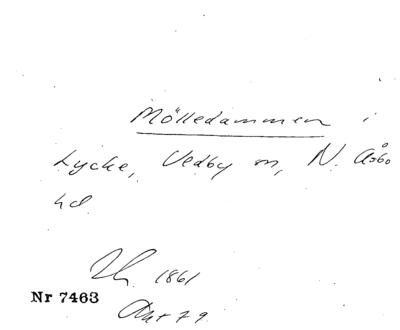 Mölledammen i
Lycke, Vedby sn, N. Åsbo
hd
1861
Nr 7463
79